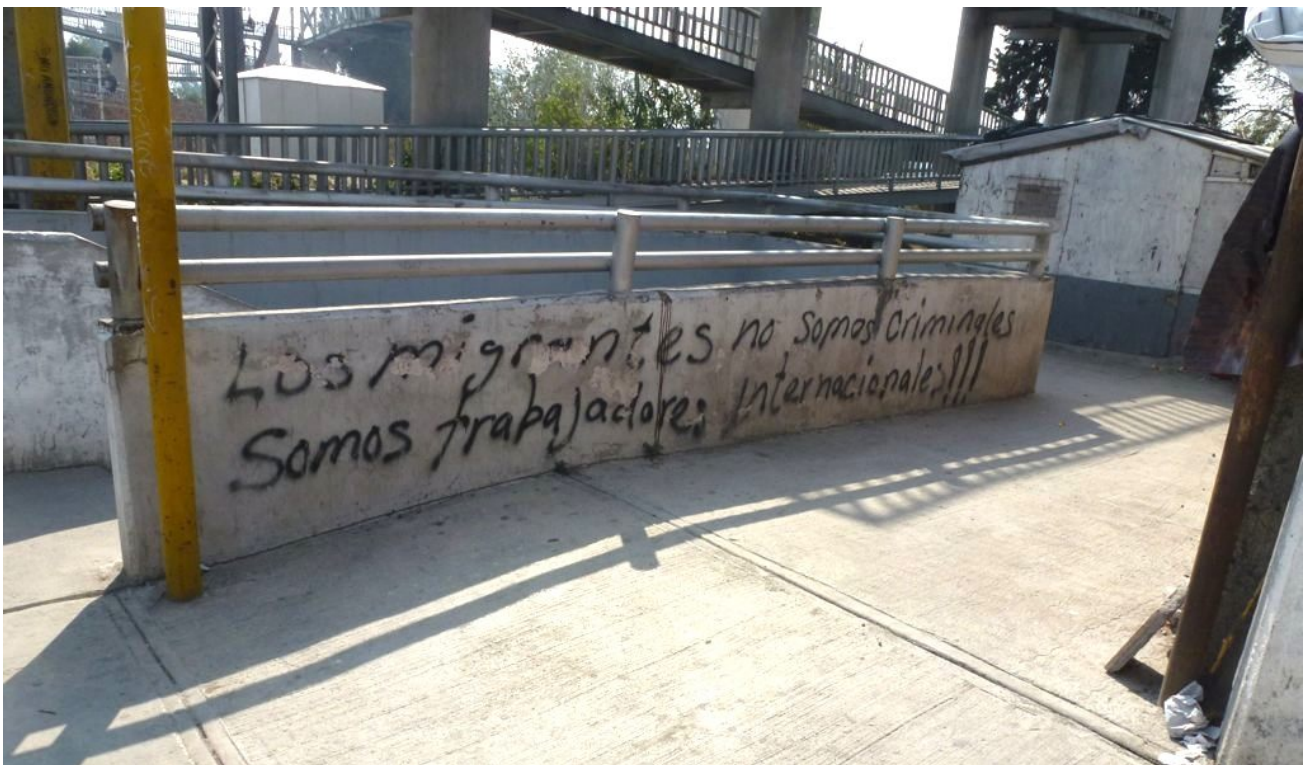 Los migrantes no somos criminales
Somos trabajadores Internacionales!!!